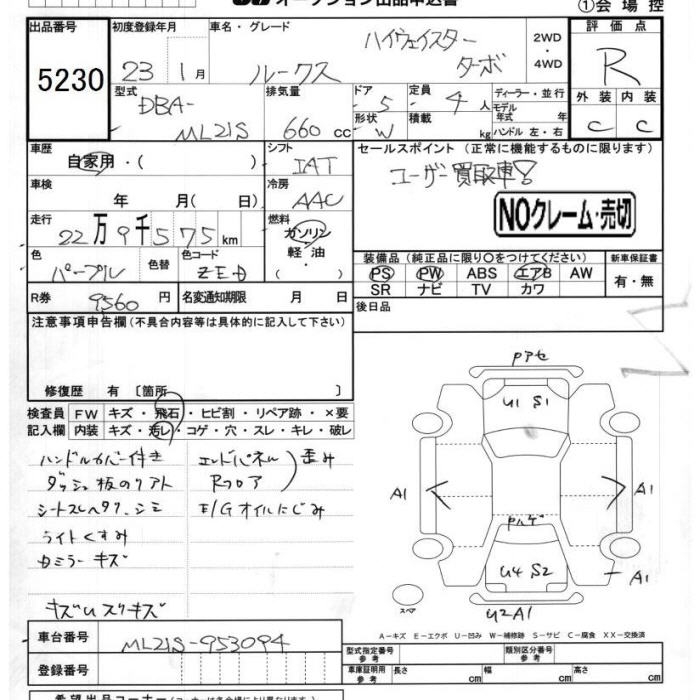 オークション出品申込書
①会場控
出品番号
5230
初度登録年月
23 1月
車名・グレード
ハイウェイスター
ルークス ターボ
2WD
・
4WD
評価点
R
型式
DBA-
ML21S
排気量
660 cc
ドア
5
形状
W
定員
4 人
積載
kg
ディーラー・並行
モデル
年式 年
ハンドル 左・右
外装 内装
C C
車歴
自家用・( )
シフト
IAT
セールスポイント (正常に機能するものに限ります)
ユーザー買取車!
NOクレーム・売切
車検
年 月( 日)
冷房
AAC
走行
22万9千575km
燃料
ガソリン
・
軽・油
色
パープル
色替
色コード
ZED
装備品 (純正品に限り○をつけてください)
新車保証書
PS PW ABS エアB AW
SR ナビ TV カワ
有・無
R券
9560 円
名変通知期限 月 日
後日品
注意事項申告欄(不具合内容等は具体的に記入して下さい)
修復歴 有 [箇所 ]
検査員
記入欄
FW キズ・飛石・ヒビ割・リペア跡・×要
内装 キズ・汚レ・コゲ・穴・スレ・キレ・破レ
ハンドルカバー付き
ダッシュ板のリアト
シートスレヘタリ、シミ
ライトくすみ
カミラーキズ
キズUスリキズ
エンドパネル
Rフロア
歪み
E/Gオイルにじみ
Pアセ
U1 S1
A1
A1
Pムゲ
U4 S2
A1
U2A1
スペア
A-キズ E-エクボ U-凹み W-補修跡 S-サビ C-腐食 XX-交換済
車台番号
ML21S-953094
登録番号
型式指定番号
参考
類別区分番号
参考
車庫証明用
参考
長さ cm
幅 cm
高さ cm
希望出品コーナー